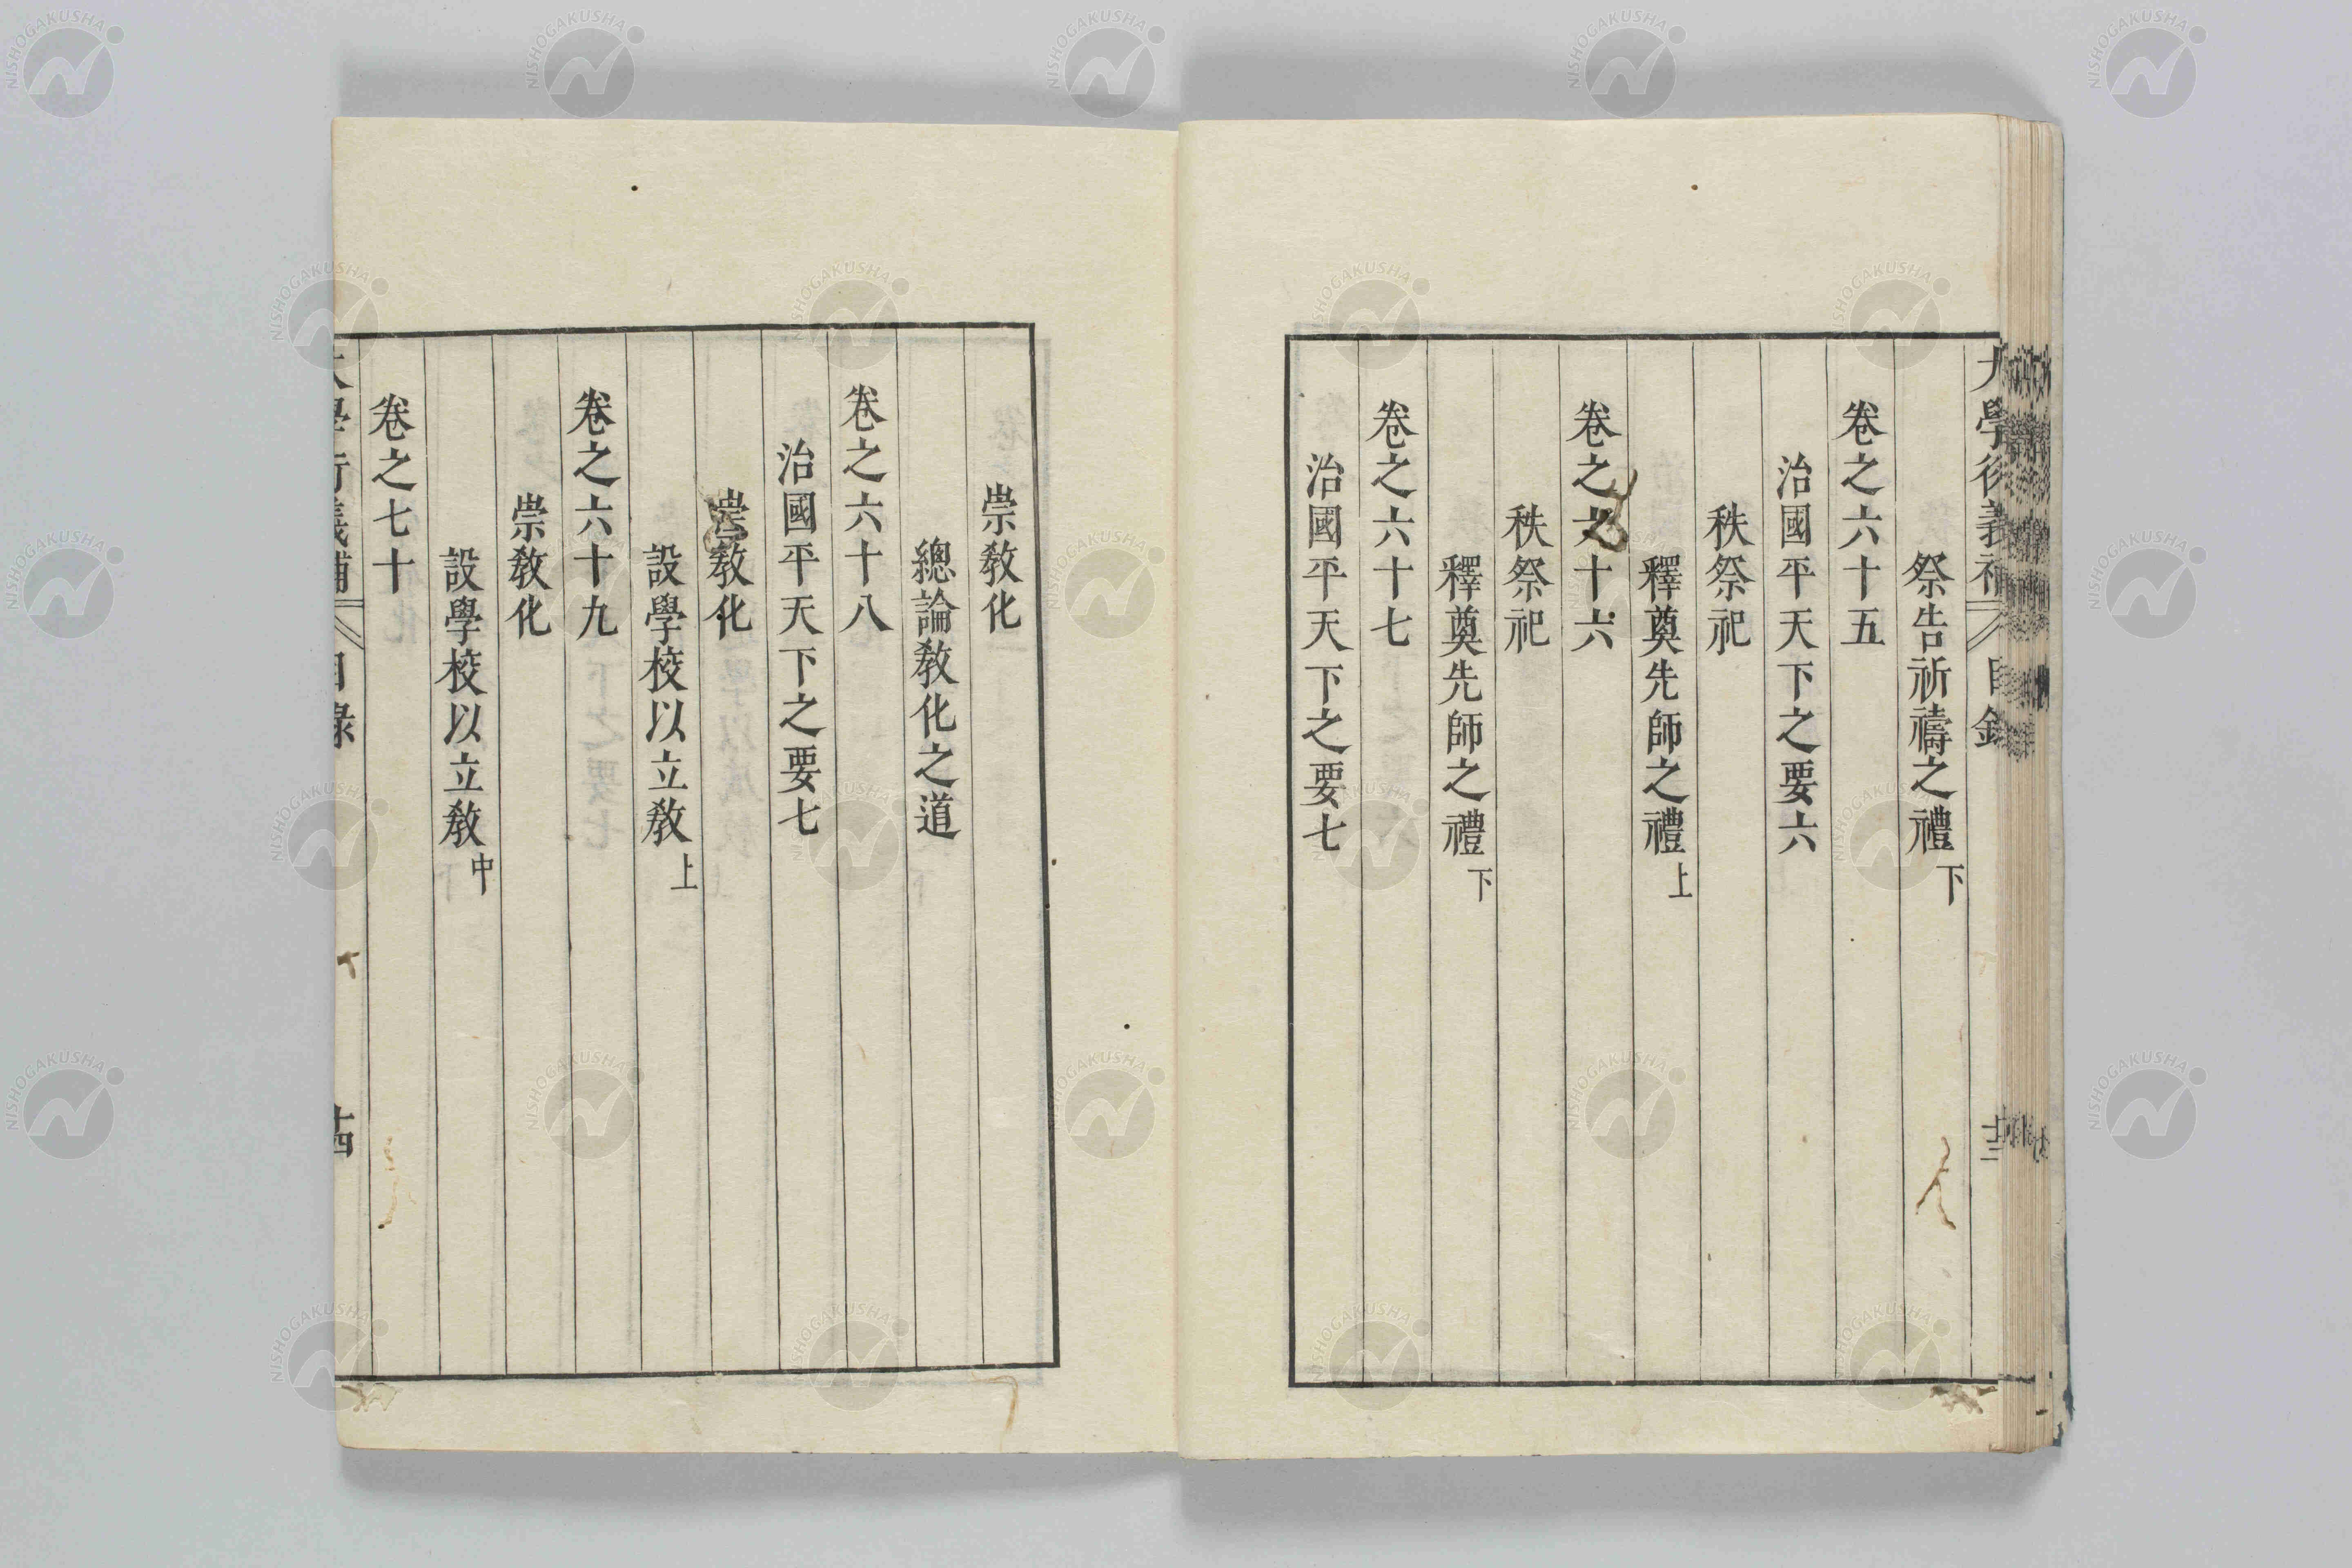 祭告祈禱之禮下
卷之六十五
治國平天下之要六
秩祭祀
釋奠先師之禮上
卷之六十六
秩祭祀
釋奠先師之禮下
卷之六十七
治國平天下之要七
崇敎化
總論敎化之道
卷之六十八
治國平天下之要七
崇敎化
設學校以立敎上
卷之六十九
崇敎化
設學校以立敎中
卷之七十
NISHOGAKUSHA